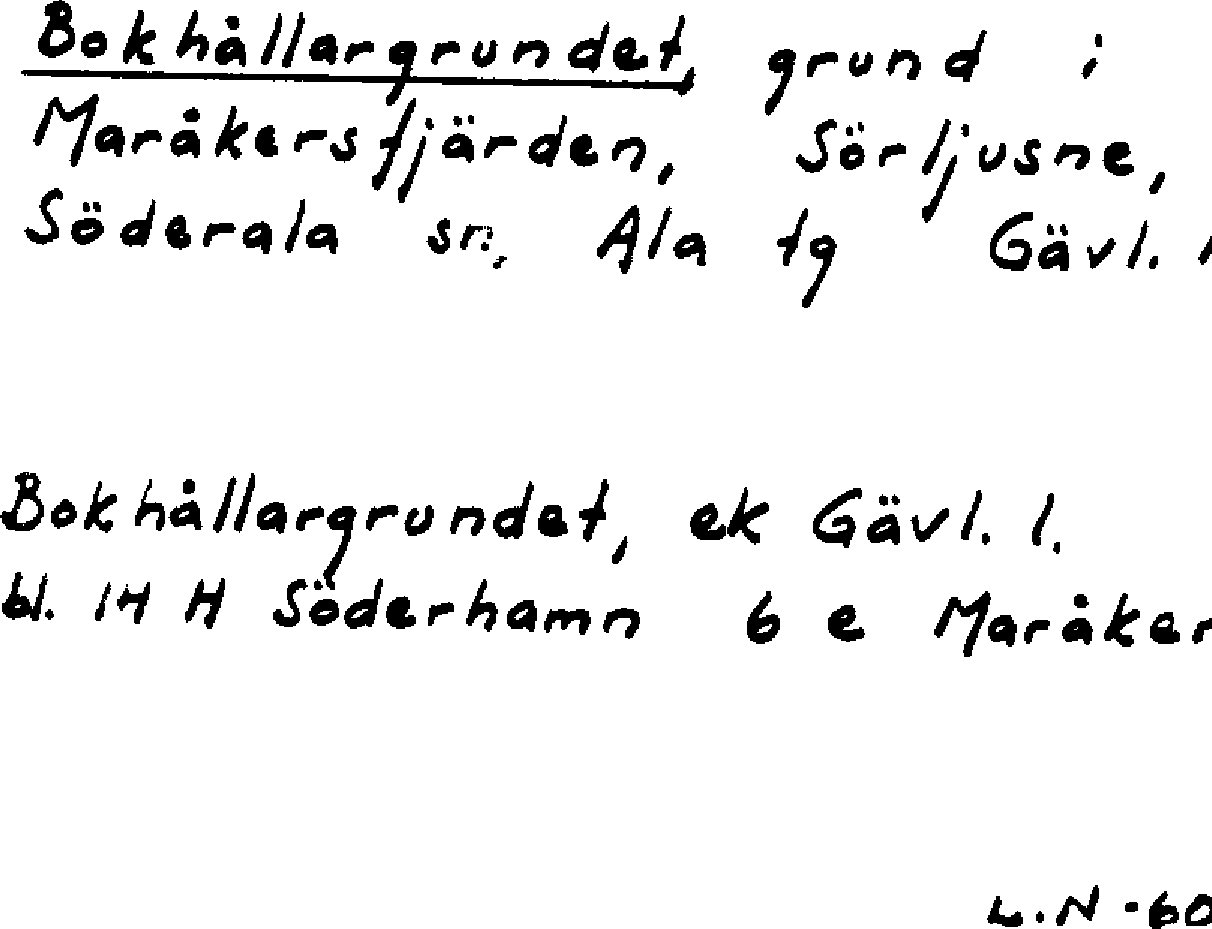 Bokhållargrundet, grund i
Maråkersfjärden, Sörljusne,
Söderala sn, Ala tg Gävl. l
Bokhållargrundet, ek Gävl. l.
bl. 14 H Söderhamn 6 e Maråker
L.N -60